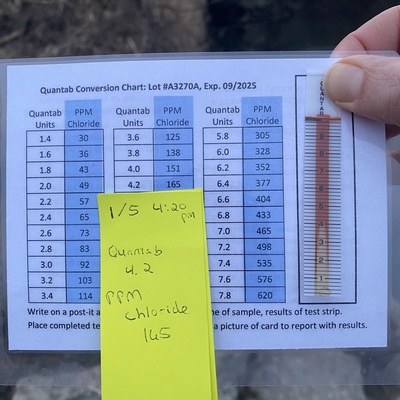 Quantab Conversion Chart: Lot #A3270A, Exp. 09/2025
Quantab Units PPM Chloride Quantab Units PPM Chloride Quantab Units PPM Chloride
1.4 30 3.6 125 5.8 305
1.6 36 3.8 138 6.0 328
1.8 43 4.0 151 6.2 352
2.0 49 4.2 165 6.4 377
2.2 57 6.6 404
2.4 65 6.8 433
2.6 73 7.0 465
2.8 83 7.2 498
3.0 92 7.4 535
3.2 103 7.6 576
3.4 114 7.8 620
1/5 4:20 pm
Quantab
4.2
PPM
Chloride
165
Write on a post-it a
ne of sample, results of test strip.
Place completed te
a picture of card to report with results.